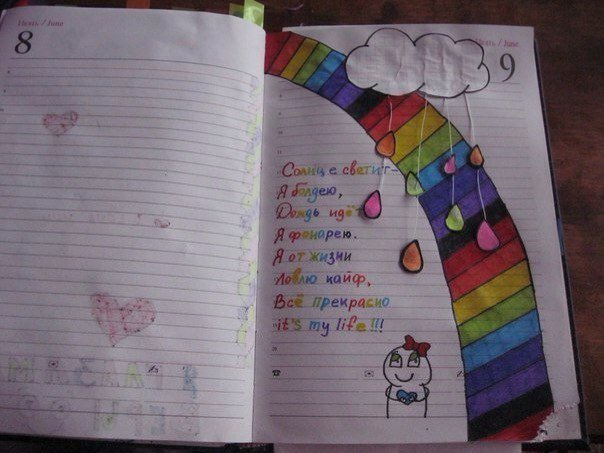 Июнь / June
8
Июнь / June
9
Солнце светит-
Я балдею,
Дождь идёт
Я фонарею.
Я от жизни
Ловлю кайф,
Всё прекрасно
it's my life!!!